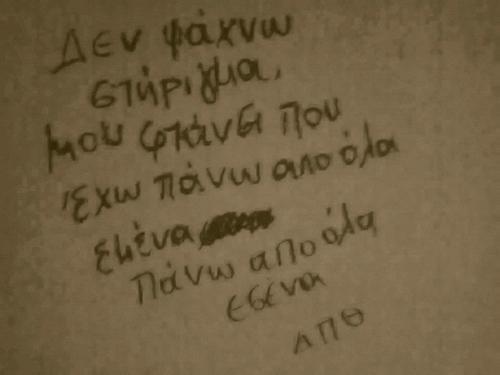 Δεν ψάχνω
στήριγμα,
μου φτάνει που
έχω πάνω απο όλα
εμένα
πάνω απο όλα
εσένα
ΑΠΘ